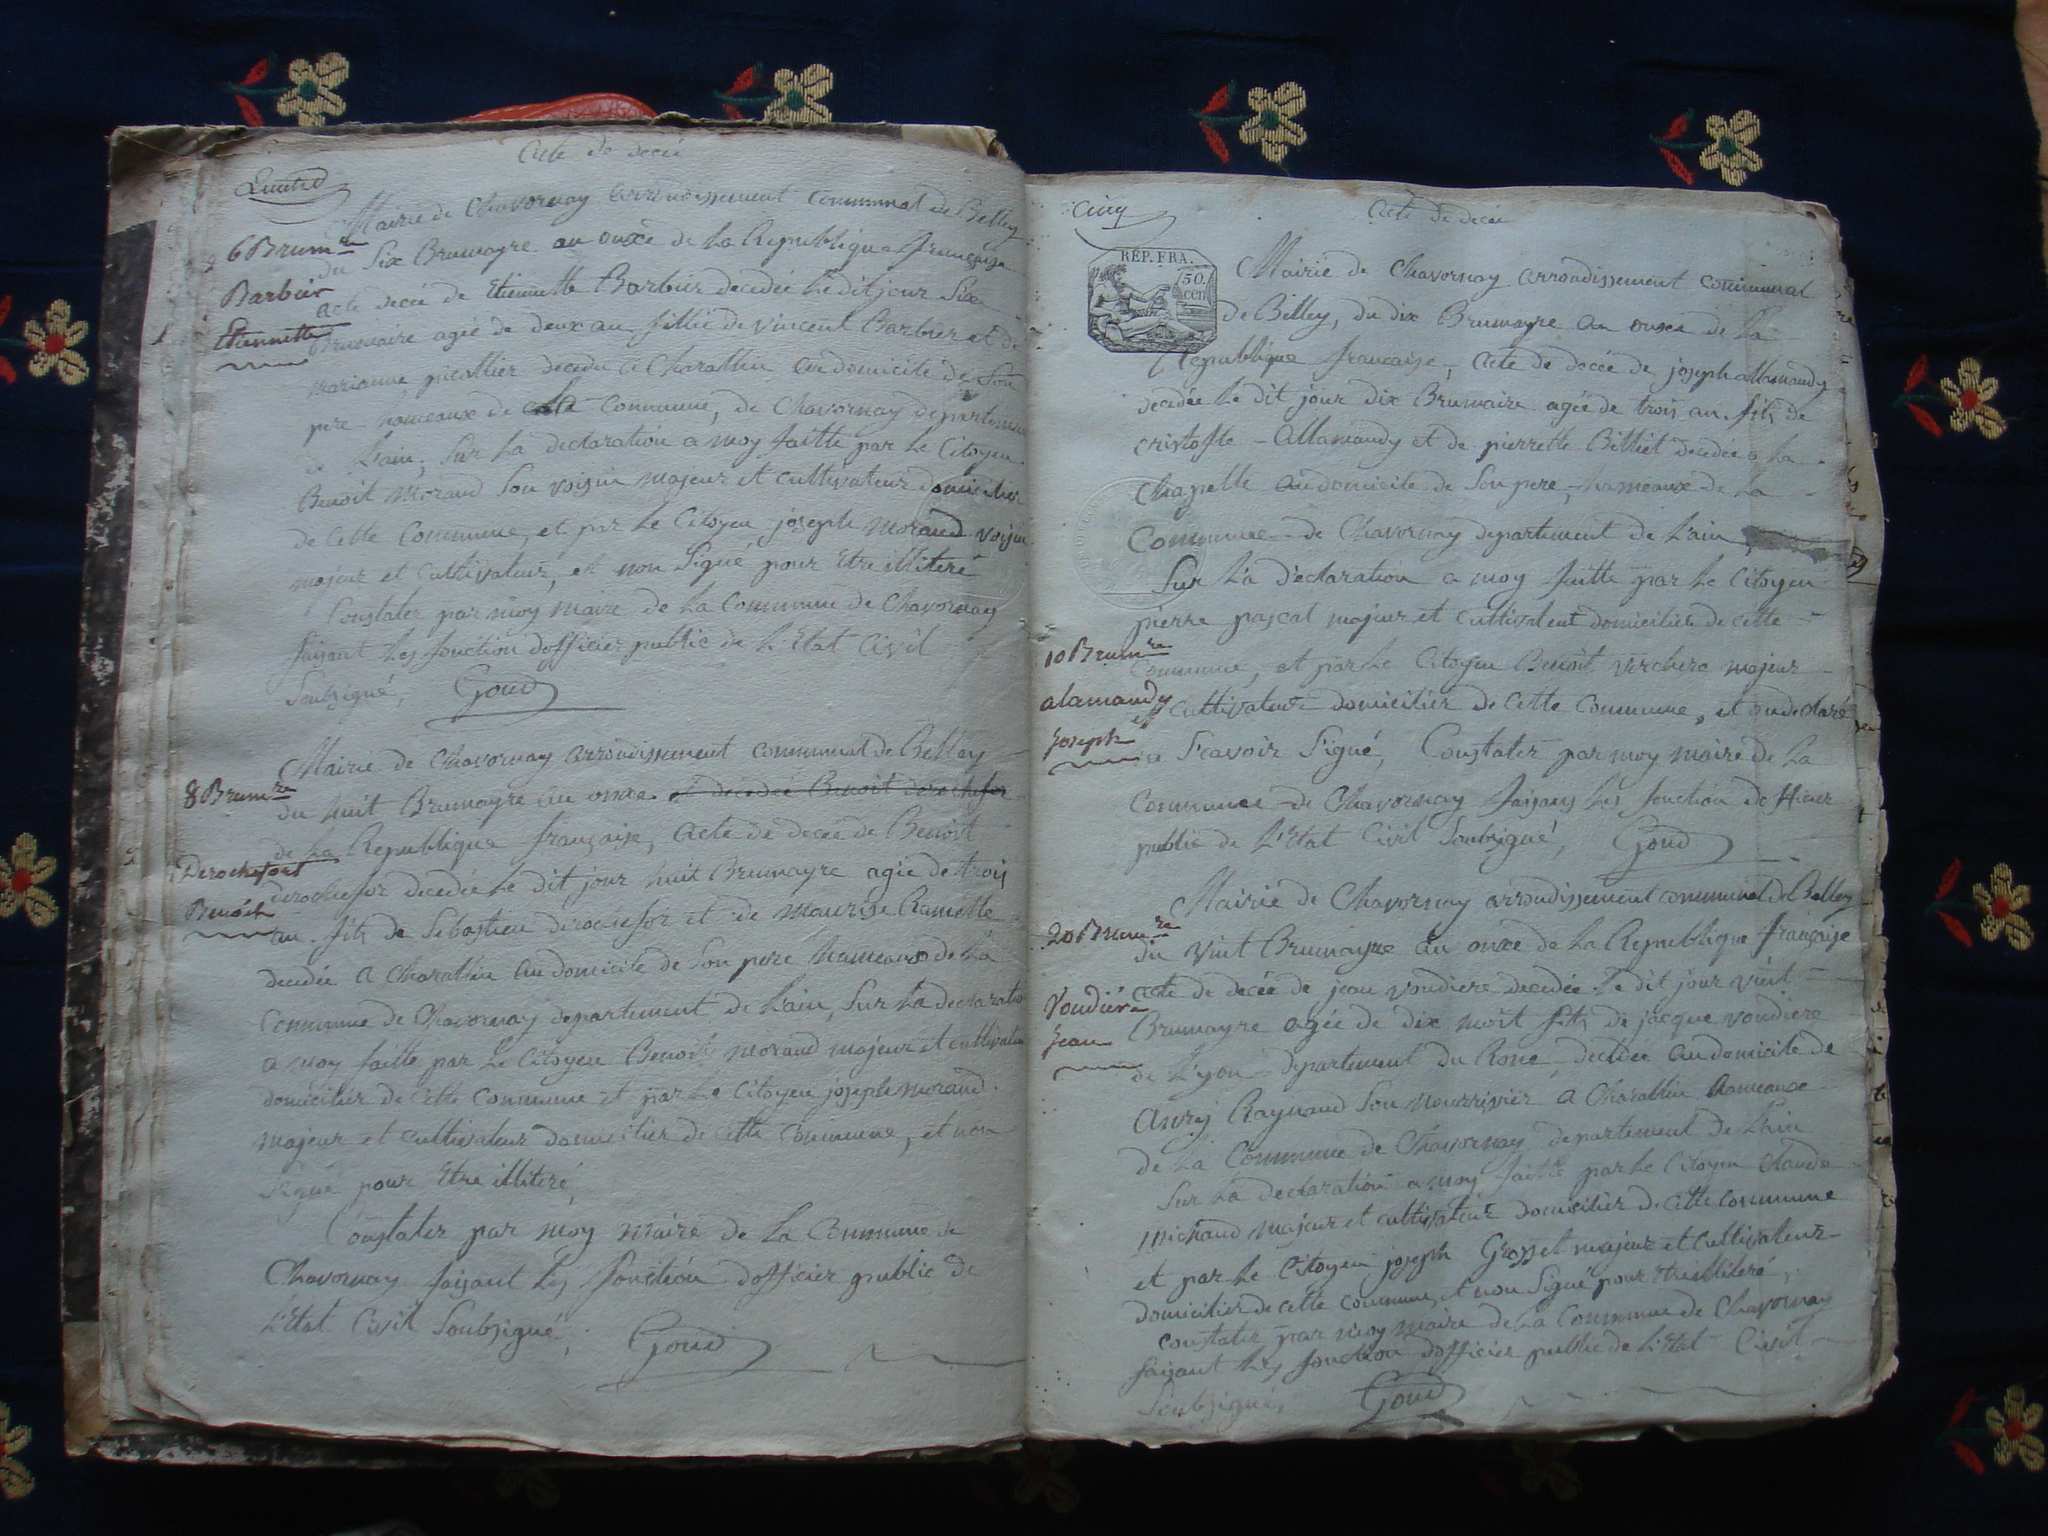 acte de decée
Mairie de Chavornay arrondissement communal de Belley
6 Brum.re
du Six Brumayre an onze de la Republique française
Barbier
acte decée de Etiennette Barbier decedée le dit jour Six
Etiennette
Brumaire agée de deux an fillie de vincent Barbier et de
marianne decedu a Charattin au domicile de son
pere hameaux de cette commune, de Chavornay departement
de Lain, sur la declaration a moy faitte par le Citoyen
Benoit Morand son voisin majeur et cultivateur domicilier
de cette commune, et par le Citoyen joseph morand voisin
majeur et cultivateur, et non signé pour Etre illiteré
Constater par moy maire de la commune de Chavornay
faisant les fonction dofficier public de L'Etat civil
Soubsigné, Goud
Mairie de Chavornay arrondissement communal de Belley
8 Brum.re
du huit Brumayre an onze et decedée Benoit derochefor
de la Republique française, acte de decée de Benoit
Derochefort
derochefor decedée le dit jour huit Brumayre agée de trois
Benoit
an fils de Sebastien derochefor et de maurise Ramelle
decedée a Charattin au domicile de son pere hameaux de la
commune de Chavornay departement de Lain, sur la declaratio
a moy faitte par le Citoyen Benoit morand majeur et cultivateu
domicilier de cette commune et par le Citoyen joseph morand
majeur et cultivateur domicilier de cette commune, et non
signé pour Etre illiteré,
Constater par moy maire de la Commune de
Chavornay faisant les fonction dofficier public de
L'Etat Civil Soubsigné, Goud
Cinq
acte de decée
RÉP. FRA.
50.
cen
Mairie de Chavornay arrondissement communal
de Belley, du dix Brumayre an onze de la
Republique française, acte de decée de joseph allamandy
decedée le dit jour dix Brumaire agée de trois an fils de
cristofle Allamandy et de pierrette Billiet decedée a la
Chapelle au domicile de son pere, hameaux de la
Commune de Chavornay departement de Lain
Sur la declaration a moy faitte par le Citoyen
pierre pascal majeur et cultivateur domicilier de cette
10 Brum.re
commune, et par le Citoyen Benoit verchere majeur
alamandy
cultivateur domicilier de cette commune, et on declaré
joseph
ne scavoir signé, Constater par moy maire de la
Commune de Chavornay faisans les fonction
public de L'Etat Civil Soubsigné, Goud
Mairie de Chavornay arrondissement communal de Belley
20 Brum.re
du vint Brumayre an onze de la Republique française
acte de decée de jean voudiere decedée le dit jour vint
Voudiére
Brumayre agée de dix moit fils de jacque voudiere
jean
de Lyon departement du Rone, decedée au domicile de
Raynaud son nourrisier a Charattin hameaux
de la Commune de Chavornay departement de Lain
Sur la declaration a moy faitte par le Citoyen Claude
Michaud majeur et cultivateur domicilier de cette commune
et par le Citoyen joseph Grosset majeur et cultivateur
domicilier de cette commune, et non signé pour etre illiteré,
constater par moy maire de la Commune de Chavornay
faisant les fonction dofficier public de L'Etat Civil
Soubsigné, Goud